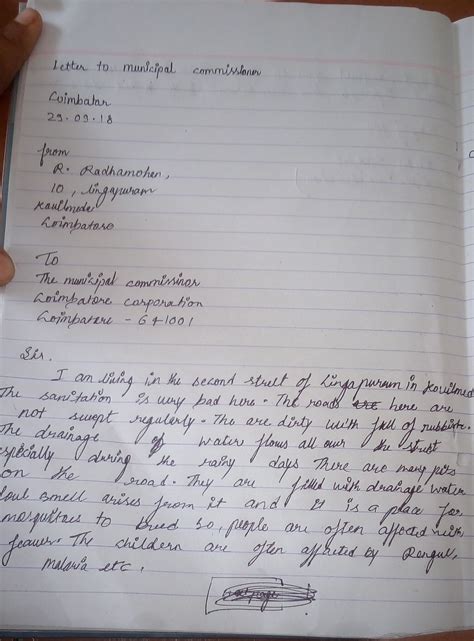 Letter to municipal commissioner
Coimbatar
29.09.18
from
R. Radhamohen,
10, lingapuram
Kavilmede
Coimbatore
To
The municipal commissinor
Coimbatore corporation
Coimbatore - 641001
Sir.
I am living in the second street of Lingapuram in Kovilmed
The sanitation is very bad here. The roads are here are
not swept regularly. The are dirty with full of rubbish.
The drainage of water flows all our the street
specially during the rainy days There are many pits
on the road. They are filled with drainage water
foul smell arises from it and it is a place for
mosquitoes to breed so, people are often affected with
feaver. The childern are often affected by Dengue,
malawa etc.